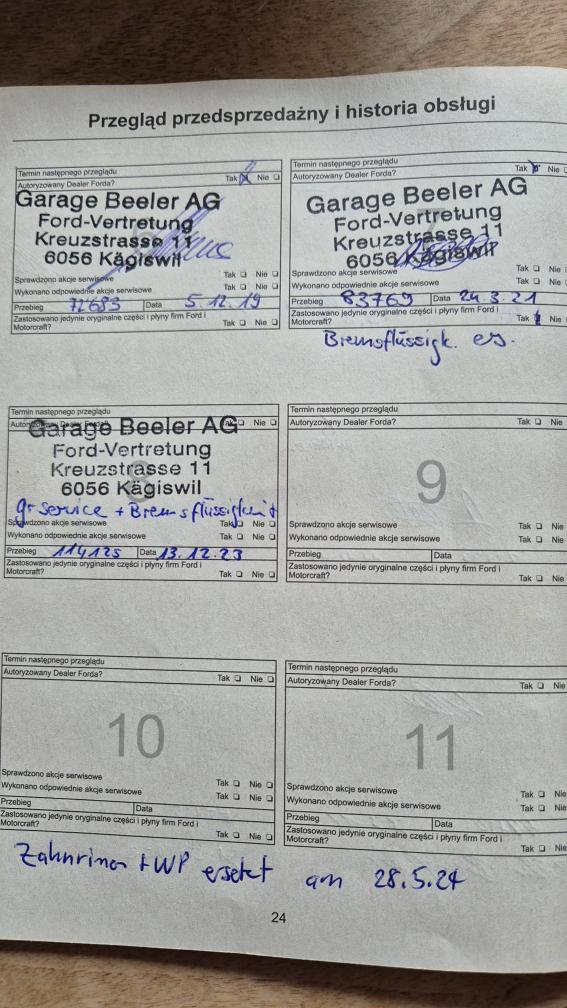 Przegląd przedsprzedażny i historia obsługi
Termin następnego przeglądu
Autoryzowany Dealer Forda? Tak Nie
Garage Beeler AG
Ford-Vertretung
Kreuzstrasse 11
6056 Kägiswil
Sprawdzono akcje serwisowe Tak Nie
Wykonano odpowiednie akcje serwisowe Tak Nie
Przebieg 72683 Data 5.12.19
Zastosowano jedynie oryginalne części i płyny firm Ford i
Motorcraft? Tak Nie
Termin następnego przeglądu
Autoryzowany Dealer Forda? Tak Nie
Garage Beeler AG
Ford-Vertretung
Kreuzstrasse 11
6056 Kägiswil
Sprawdzono akcje serwisowe Tak Nie
Wykonano odpowiednie akcje serwisowe Tak Nie
Przebieg 83769 Data 24.3.21
Zastosowano jedynie oryginalne części i płyny firm Ford i
Motorcraft? Tak Nie
Bremsflüssigk. ers.
Termin następnego przeglądu
Autoryzowany Dealer Forda? Tak Nie
Garage Beeler AG
Ford-Vertretung
Kreuzstrasse 11
6056 Kägiswil
8
gr service + Bremsflüssigkeit
Sprawdzono akcje serwisowe Tak Nie
Wykonano odpowiednie akcje serwisowe Tak Nie
Przebieg 114125 Data 13.12.23
Zastosowano jedynie oryginalne części i płyny firm Ford i
Motorcraft? Tak Nie
Termin następnego przeglądu
Autoryzowany Dealer Forda? Tak Nie
9
Sprawdzono akcje serwisowe Tak Nie
Wykonano odpowiednie akcje serwisowe Tak Nie
Przebieg Data
Zastosowano jedynie oryginalne części i płyny firm Ford i
Motorcraft? Tak Nie
Termin następnego przeglądu
Autoryzowany Dealer Forda? Tak Nie
10
Sprawdzono akcje serwisowe Tak Nie
Wykonano odpowiednie akcje serwisowe Tak Nie
Przebieg Data
Zastosowano jedynie oryginalne części i płyny firm Ford i
Motorcraft? Tak Nie
Termin następnego przeglądu
Autoryzowany Dealer Forda? Tak Nie
11
Sprawdzono akcje serwisowe Tak Nie
Wykonano odpowiednie akcje serwisowe Tak Nie
Przebieg Data
Zastosowano jedynie oryginalne części i płyny firm Ford i
Motorcraft? Tak Nie
Zahnrimen + WP ersetzt am 28.5.24
24